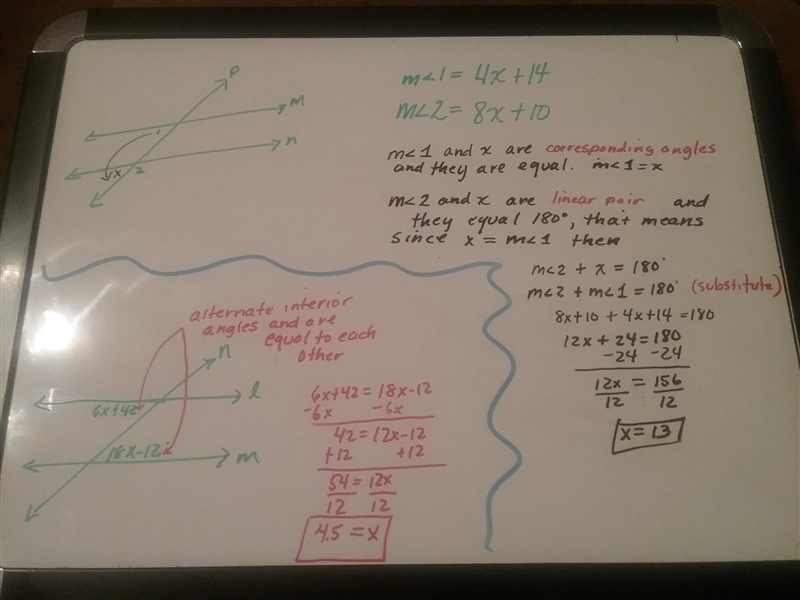 p
m
n
1
x
2
m<1 = 4x+14
m<2 = 8x+10
m<1 and x are corresponding angles
and they are equal. m<1 = x
m<2 and x are linear pair and
they equal 180°, that means
since x = m<1 then
m<2 + x = 180°
m<2 + m<1 = 180° (substitute)
8x+10 + 4x+14 = 180
12x + 24 = 180
-24 -24
12x = 156
12 12
x = 13
alternate interior
angles and are
equal to each
other
n
l
6x+42
18x-12
m
6x+42 = 18x-12
-6x -6x
42 = 12x-12
+12 +12
54 = 12x
12 12
4.5 = x